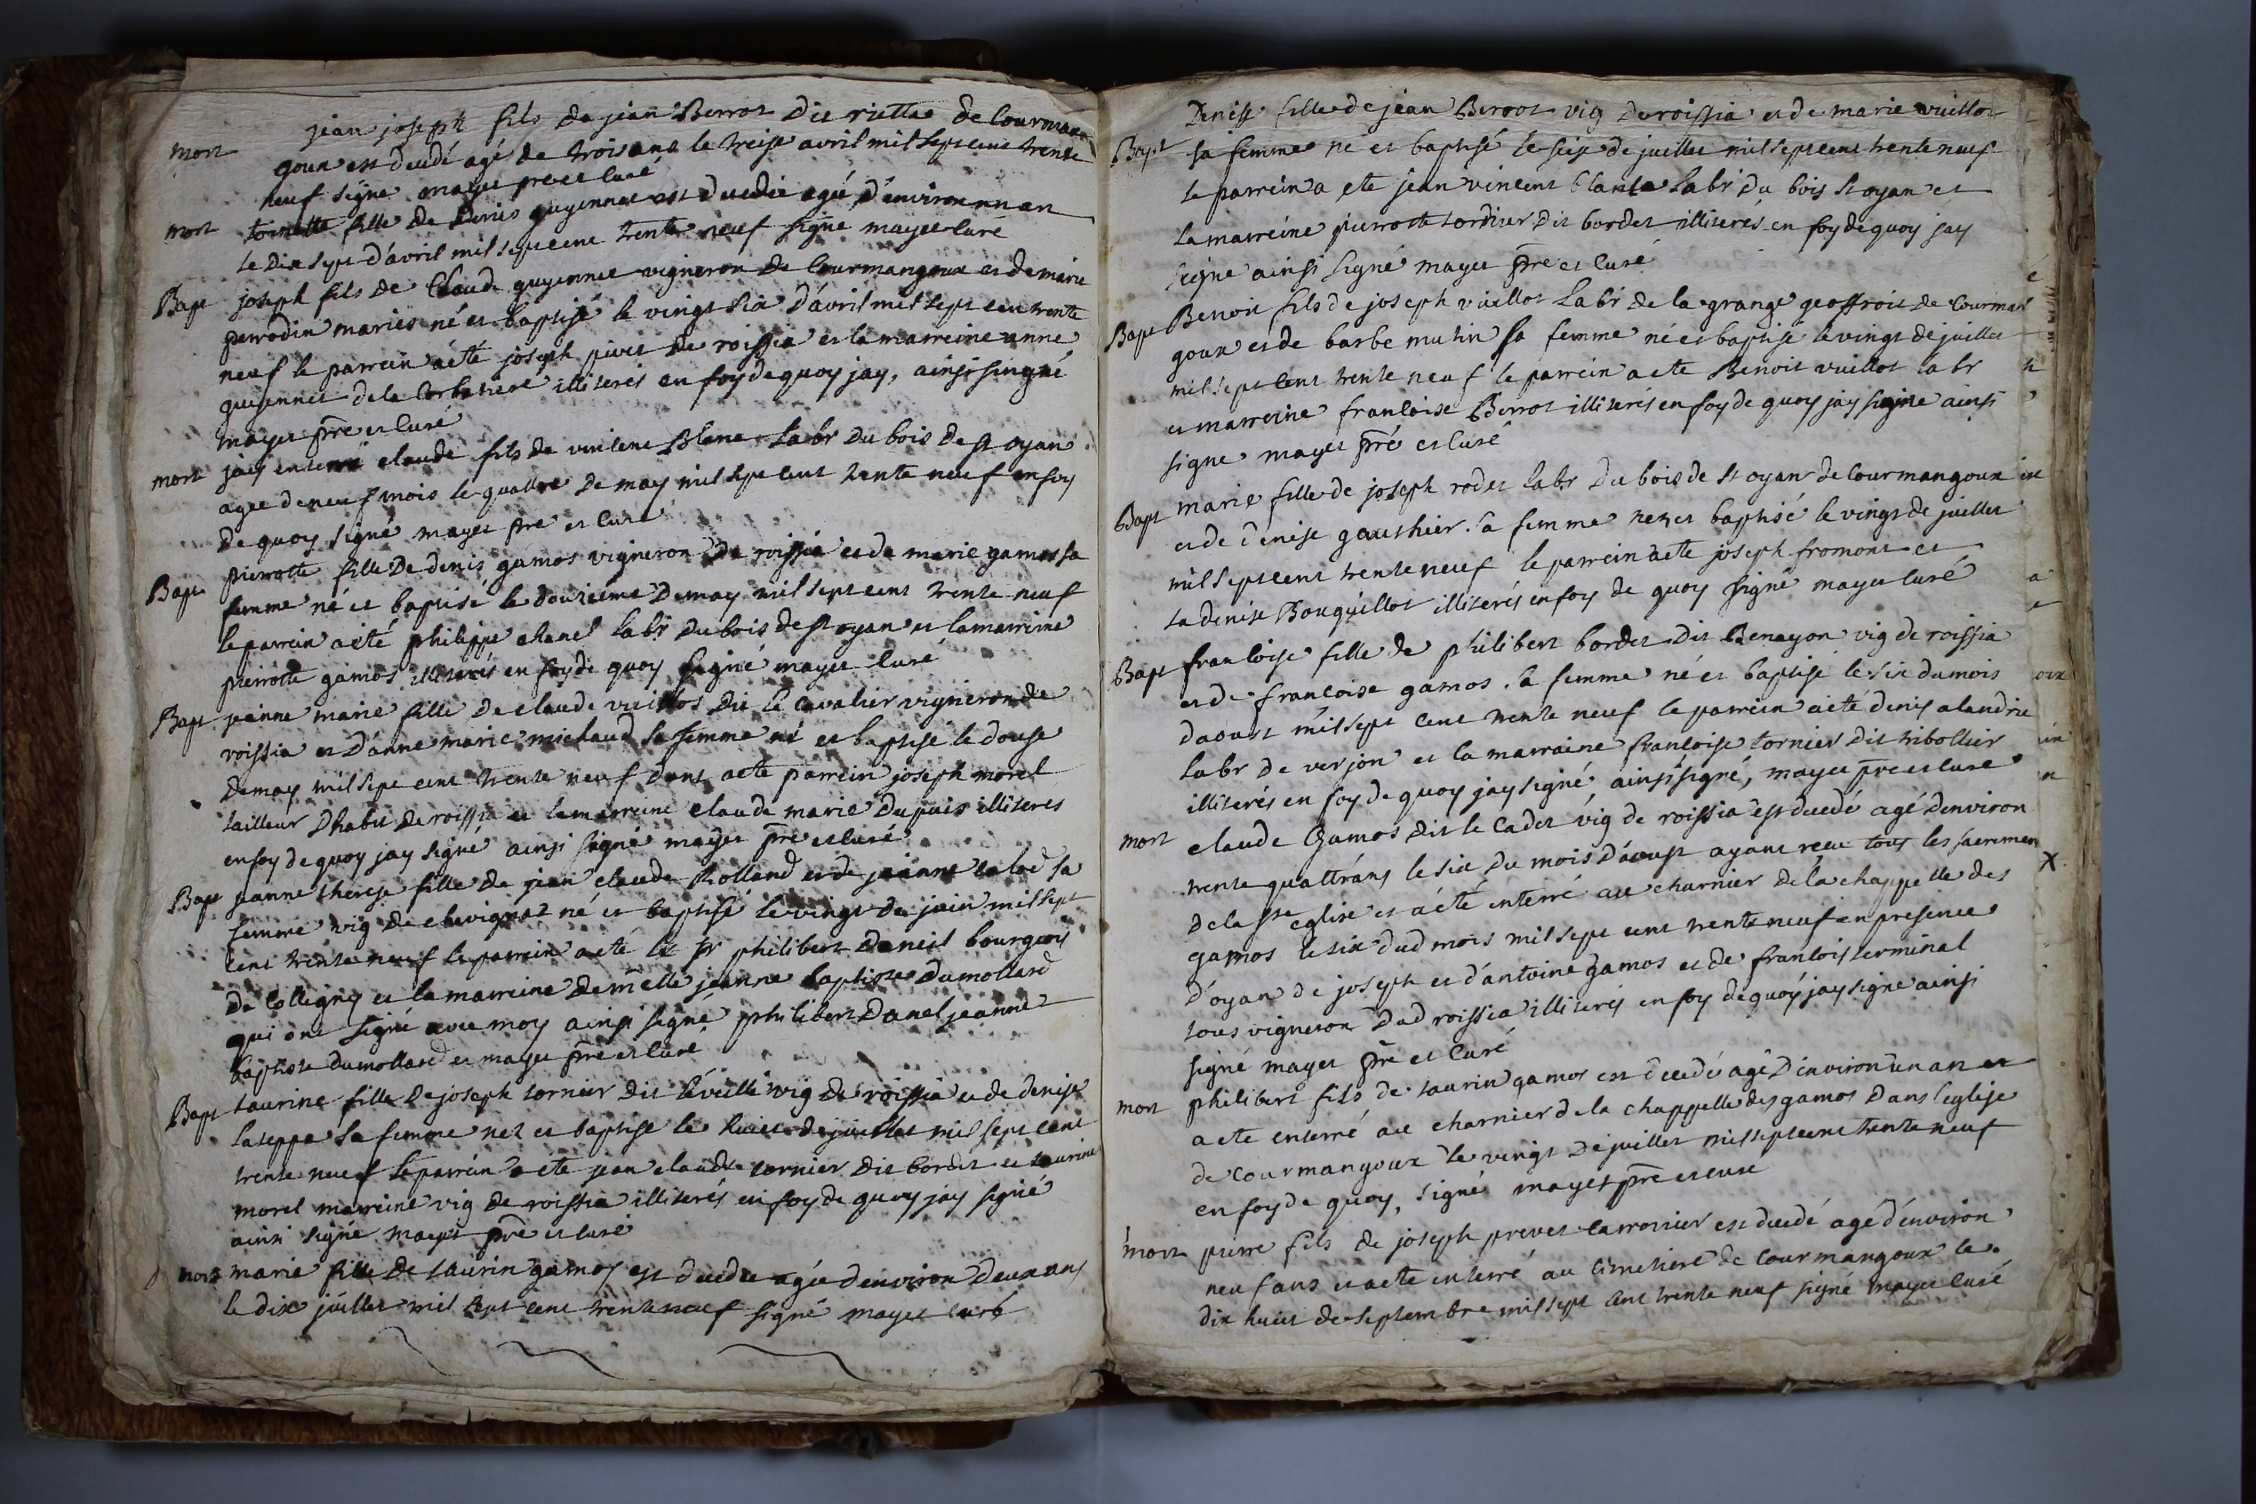 jean joseph fils de jean Berrot dit rietta de Courman
mort goux est decedé agé de trois ans le treise avril mil sept cent trente
neuf signe mayet prre et curé
mort toinette fille de denis guyennet est decedée agée d'environ un an
le dix sept d'avril mil sept cent trente neuf signe mayet curé
Bapt joseph fils de Claude guyennet vigneron de Courmangoux et de marie
perrodin mariés né et baptisé le vingt six d'avril mil sept cent trente
neuf le parrein a été joseph pivet de roissia et la marreine anne
guyennet de la Corbatiere illiterés en foy de quoy jay, ainsi singné
mayet pre et curé
mort jay enterré claude fils de vincent Blanc Labr du bois de st oyan
agee de neuf mois le quattre de may mil sept cent trente neuf en foy
de quoy signé mayet pre et curé
Bapt pierrotte fille de denis gamos vigneron de roissia et de marie gamos sa
femme né et baptisé le douzieme de may mil sept cent trente neuf
le parrein a été philippe chanel labr du bois de st oyan et la marreine
pierrotte gamos illiterés en foy de quoy signé mayet curé
Bapt jeanne marie fille de claude vuillos dit le Cavalier vigneron de
roissia et d'anne marie michaud sa femme né et baptisé le douse
de may mil sept cent trente neuf dont a ete parrein joseph morel
tailleur dhabit de roissia et la marreine claude marie dupuis illiterés
en foy de quoy jay signé ainsi signé mayet pre et curé
Bapt jeanne therese fille de jean claude Rolland et de jeanne sa
femme vig de chevignat né et baptisé le vingt de juin mil sept
cent trente neuf le parrein a ete le sr philibert daneil bourgeois
de Colligny et la marreine demelle jeanne baptiste dumollard
qui ont signé avec moy ainsi signé philibert Danel jeanne
baptiste dumollard et mayet pre et curé
Bapt taurine fille de joseph tornier dit léveillé vig de roissia et de denise
lateppe sa femme nez et baptisé le huict de juillet mil sept cent
trente neuf le parrein a ete jean claude tornier dit bordet et taurine
morel marreine vig de roissia illiterés en foy de quoy jay signé
ainsi signé mayet pre et curé
mort marie fille de taurin gamos est decedee agée d'environ deux ans
le dix juillet mil sept cent trente neuf signé mayet curé
Denise fille de jean Berrot vig de roissia et de marie vuillot
Bapt sa femme né et baptisé le seize de juillet mil sept cent trente neuf
le parrein a ete jean vincent blanc Labr du bois st oyan et
la marreine pierrotte tornier dit bordet illiterés en foy de quoy jay
signe ainsi signé mayet pre et curé
Bapt Benoit fils de joseph vuillot Labr de la grange geoffroit de Courman
goux et de barbe mutin sa femme né et baptisé le vingt de juillet
mil sept cent trente neuf le parrein a ete Benoit vuillot labr
et marreine francoise Berrot illiterés en foy de quoy jay signe ainsi
signe mayet pre et curé
Bapt marie fille de joseph rodet labr du bois de st oyan de Courmangoux
et de denise gauthier sa femme nez et baptisé le vingt de juillet
mil sept cent trente neuf le parrein a ete joseph fromont et
la denise Bouquillot illiterés en foy de quoy signé mayet curé
Bapt francoise fille de philibert bordet dit Benayon vig de roissia
et de francoise gamos sa femme né et baptisé le six du mois
daoust mil sept cent trente neuf le parrein a été denis alandrie
labr de verjon et la marraine francoise tornier dit tribollier
illiterés en foy de quoy jay signé ainsi signé, mayet pre et curé
mort claude Gamos dit le Cadet vig de roissia est decedé agé d'environ
trente quattr'ans le six du mois d'aoust ayant receu tous les sacremen
de la ste eglise et a été enterré au charnier de la chappelle des
gamos le six dud mois mil sept cent trente neuf en presence
d'oyan de joseph et d'antoine gamos et de francois terminal
tous vigneron dud roissia illiterés en foy de quoy jay signe ainsi
signé mayet pre et curé
mort philibert fils de taurin gamos est decedé agé d'environ un an et
a ete enterré au charnier de la chappelle des gamos dans l'eglise
de Courmangoux le vingt de juillet mil sept cent trente neuf
en foy de quoy, signé mayet pre et curé
mort pierre fils de joseph prevet est decedé agé d'environ
neuf ans et a ete enterré au cimetiere de Courmangoux le
dix huict de septembre mil sept cent trente neuf signé mayet curé